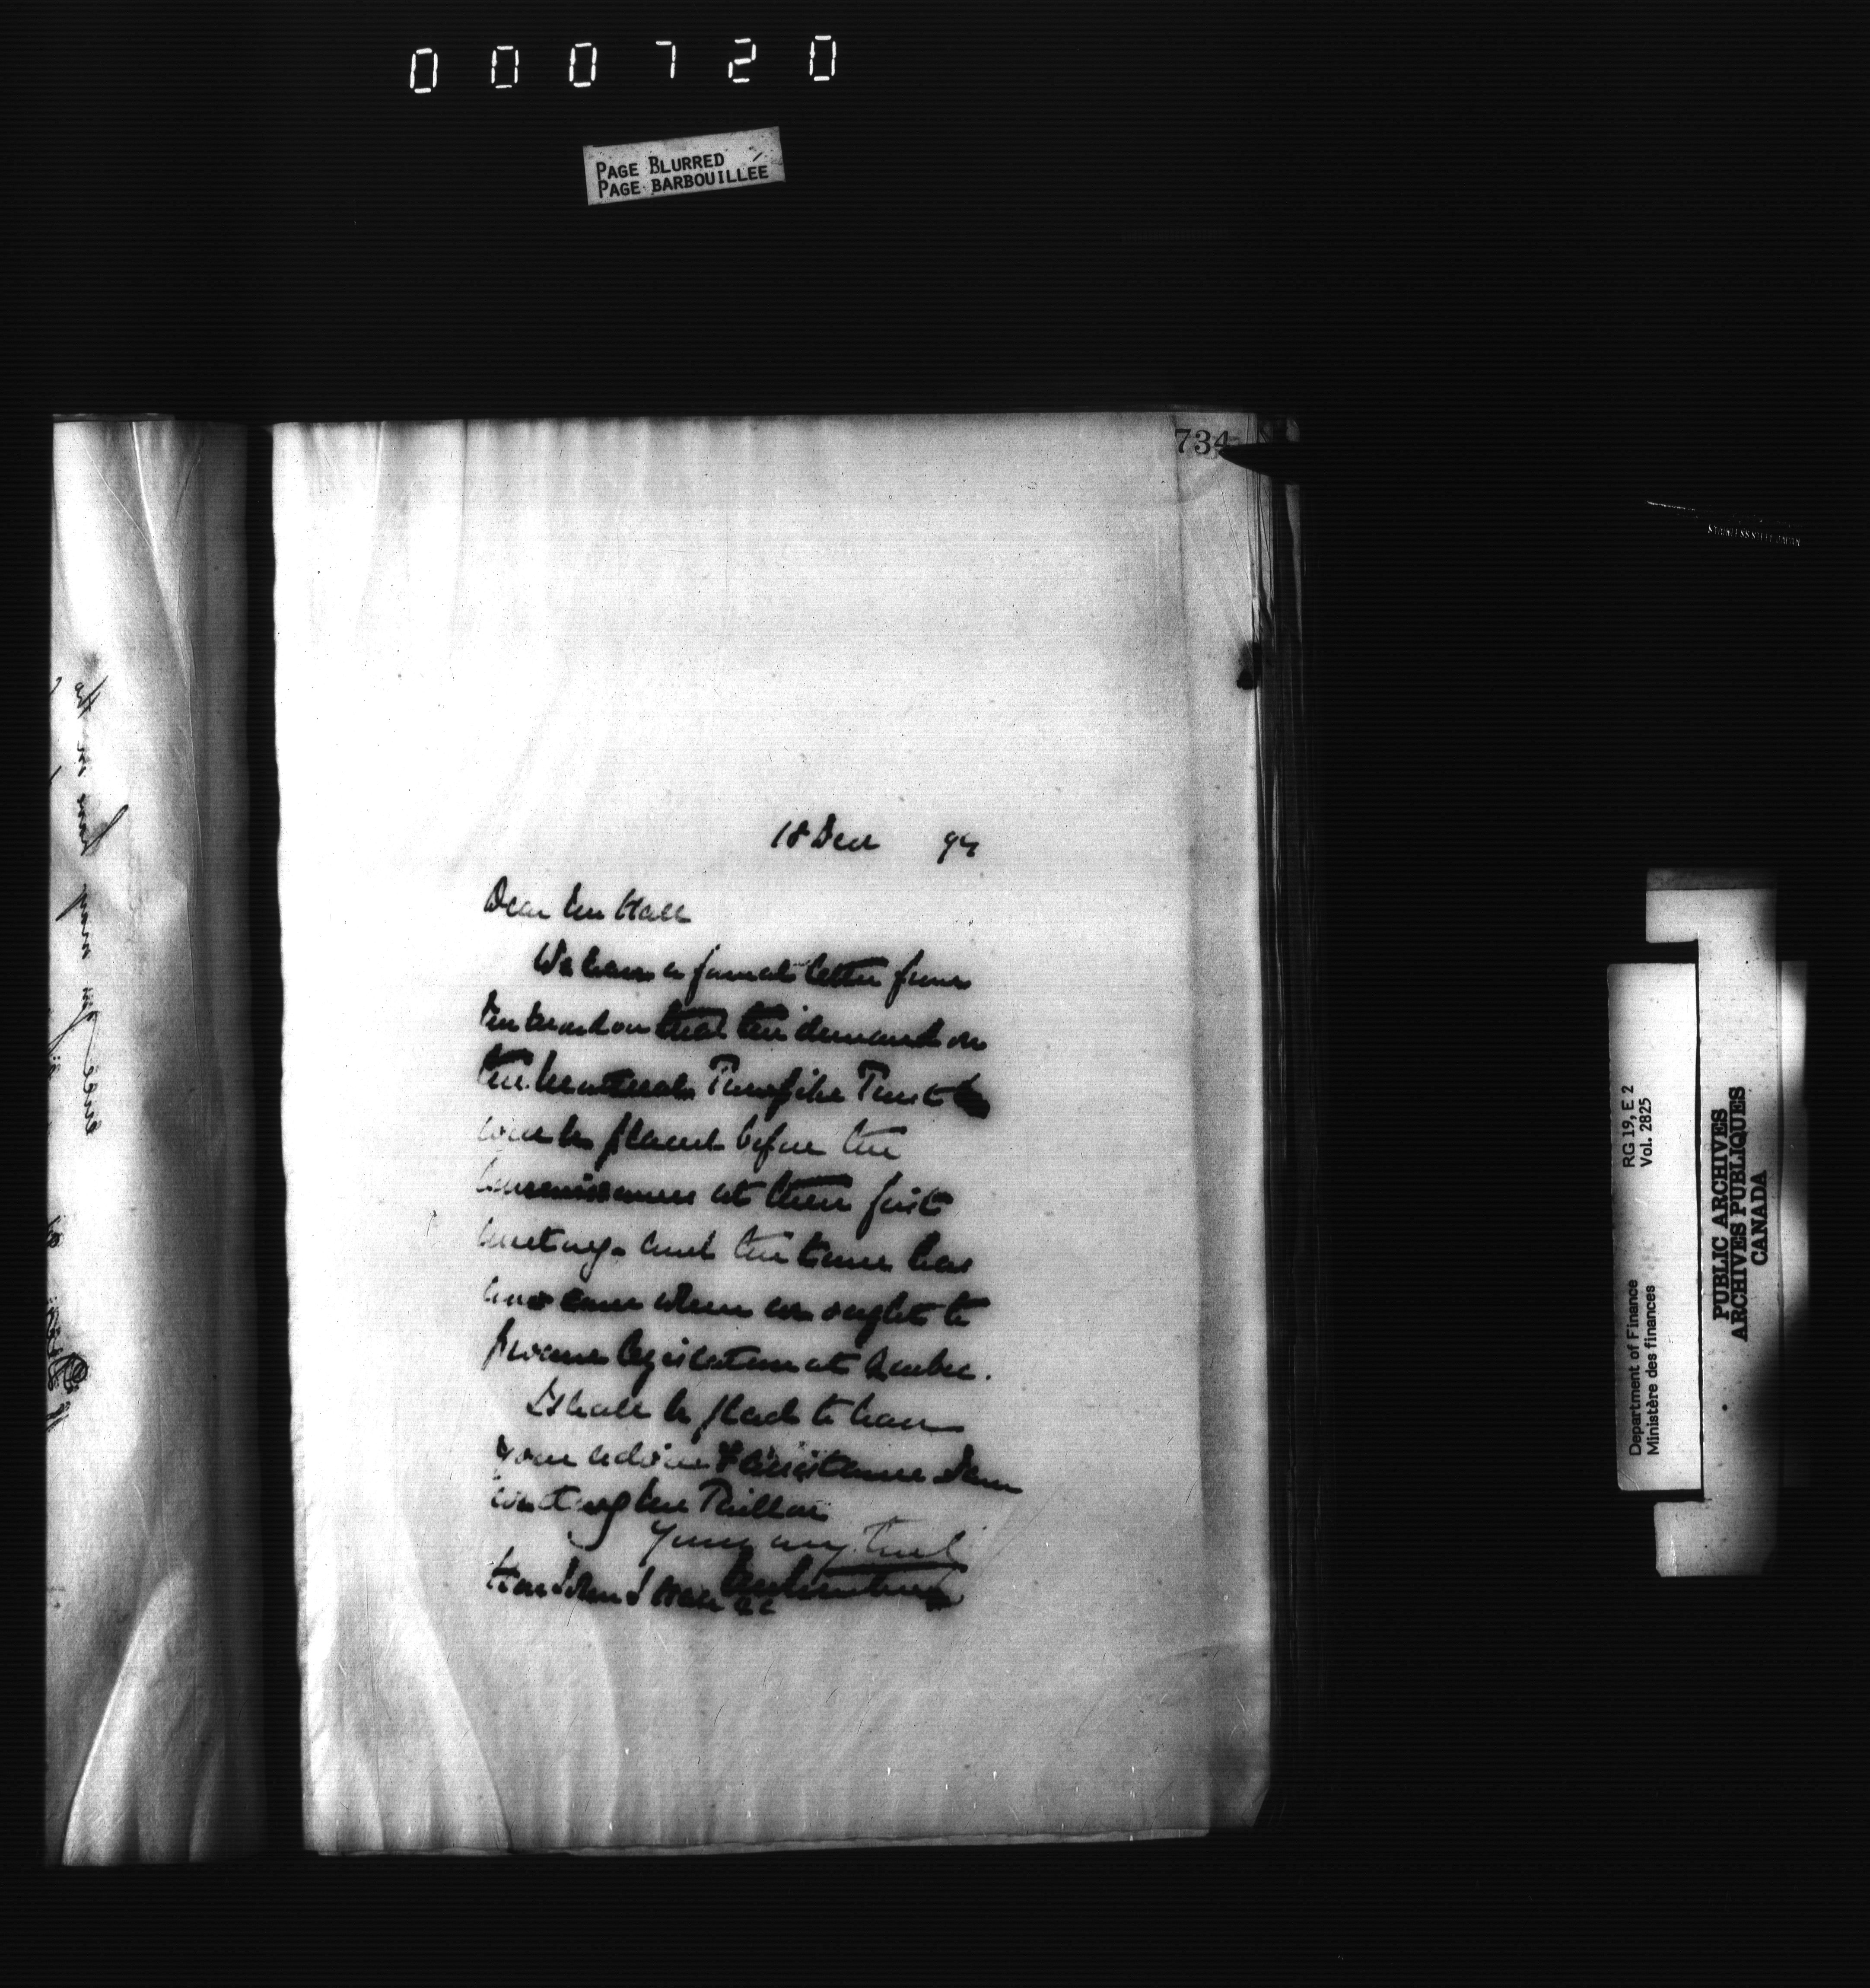 000720
PAGE BLURRED
PAGE BARBOUILLÉE
734
18 Decr 94
Dear Mr Hall
We have a formal letter from
that the demand on
the Montreal Turnpike Trust
will be placed before the
Commissioners at their first
meeting - and the time has
now come when we ought to
procure legislation at Quebec.
I shall be glad to have
your advice & assistance I am
writing Mr Taillon
Yours very truly
Hon John S Hall QC
STAINLESS STEEL JAPAN
Department of Finance RG 19, E 2
Ministère des finances Vol. 2825
PUBLIC ARCHIVES
ARCHIVES PUBLIQUES
CANADA